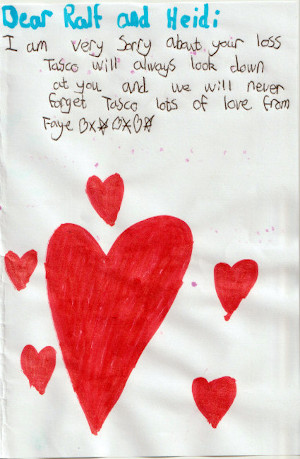 Dear Ralf and Heidi
I am very Sorry about your loss
Tasco will always look down
at you and we will never
forget Tasco lots of love from
Faye